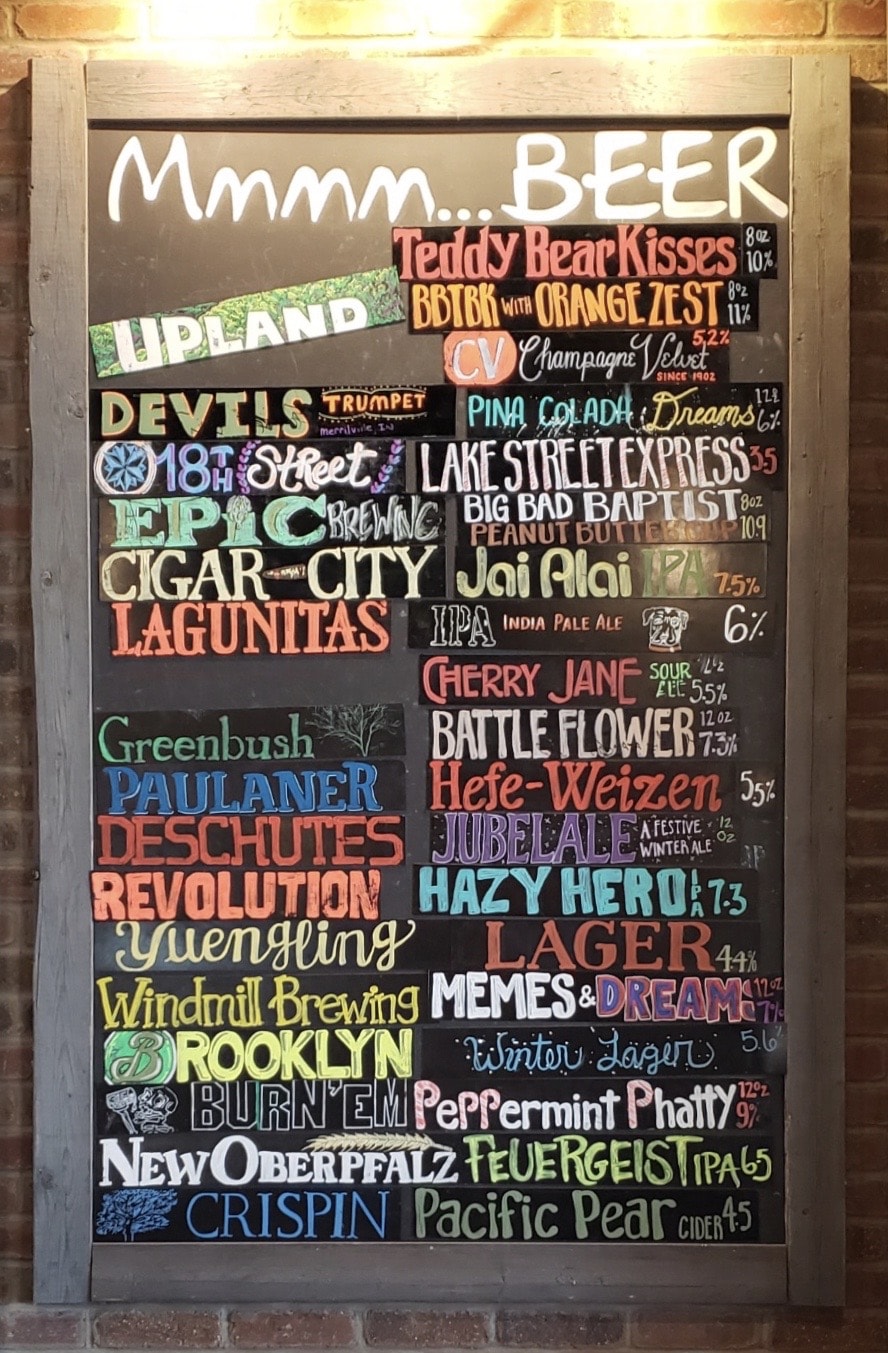 Mmmm...BEER
Teddy Bear Kisses 8oz 10%
UPLAND BBTBK WITH ORANGE ZEST 8oz 11%
CV Champagne Velvet 5.2% SINCE 1902
DEVILS TRUMPET merrilville, IN PINA COLADA Dreams 12oz 6%
18TH Street LAKE STREET EXPRESS 3.5
EPIC BREWING BIG BAD BAPTIST 8oz
PEANUT BUTTER CUP 10.9
CIGAR CITY Jai Alai IPA 7.5%
LAGUNITAS IPA INDIA PALE ALE 6%
CHERRY JANE SOUR ALE 12oz 5.5%
Greenbush BATTLE FLOWER 12 oz 7.3%
PAULANER Hefe-Weizen 5.5%
DESCHUTES JUBELALE A FESTIVE WINTER ALE 12 oz
REVOLUTION HAZY HERO IPA 7.3
Yuengling LAGER 4.4%
Windmill Brewing MEMES & DREAMS 12oz 7%
BROOKLYN Winter Lager 5.6
BURN'EM Peppermint Phatty 12oz 9%
NEW OBERPFALZ FEUERGEIST IPA 6.5
CRISPIN Pacific Pear CIDER 4.5